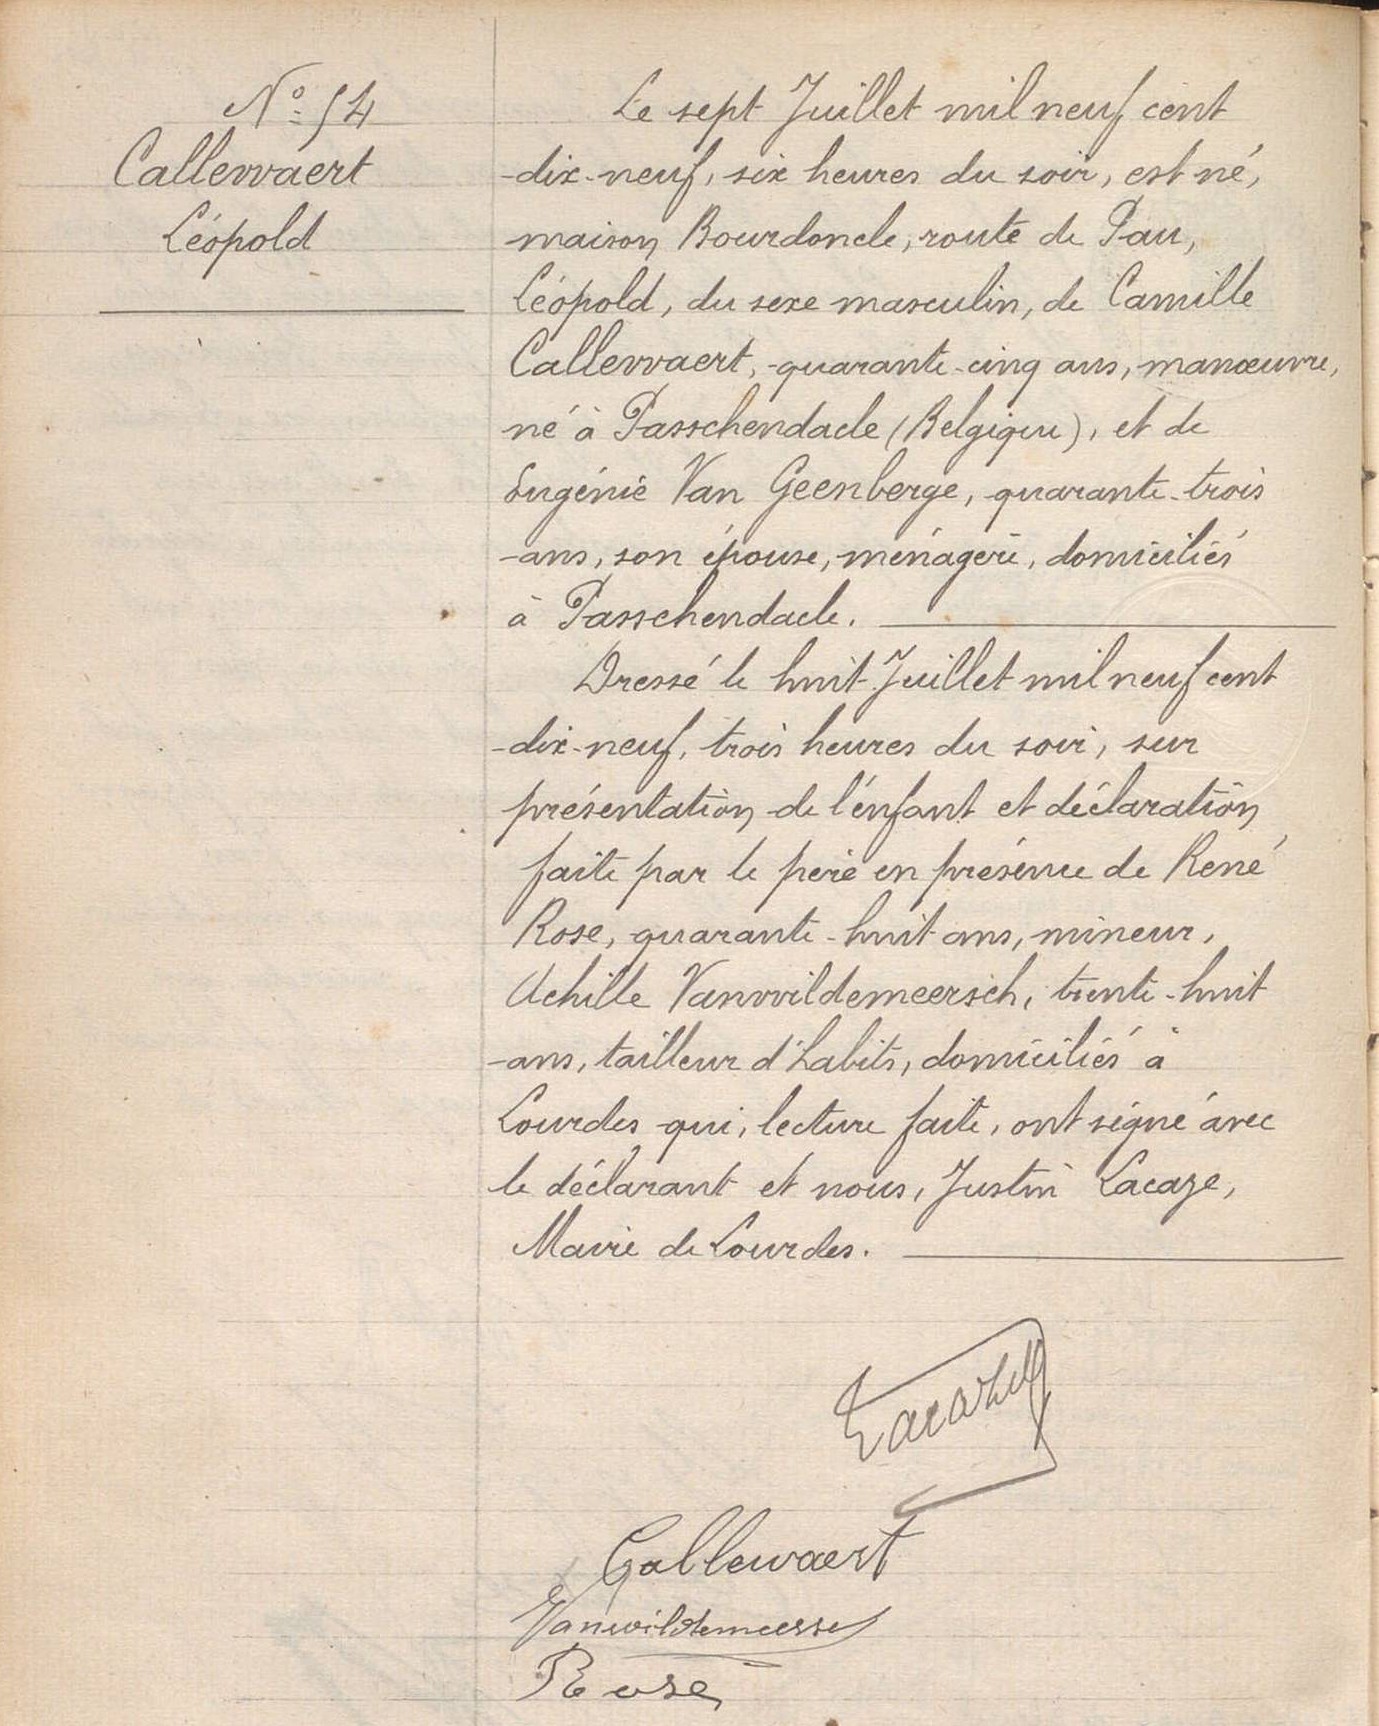 Nº 54
Callewaert
Léopold
Le sept Juillet mil neuf cent
dix-neuf, six heures du soir, est né,
maison Bourdoncle, route de Pau,
Léopold, du sexe masculin, de Camille
Callewaert, quarante-cinq ans, manœuvre,
né à Passchendaele (Belgique), et de
Eugénie Van Geenberge, quarante-trois
ans, son épouse, ménagère, domiciliés
à Passchendaele.
Dressé le huit Juillet mil neuf cent
dix-neuf, trois heures du soir, sur
présentation de l'enfant et déclaration
faite par le père en présence de René
Rose, quarante-huit ans, mineur,
Achille Vanwildemeersch, trente-huit
ans, tailleur d'habits, domiciliés à
Lourdes qui, lecture faite, ont signé avec
le déclarant et nous, Justin Lacaze,
Maire de Lourdes.
Lacaze
Callewaert
Vanwildemeersch
Rose